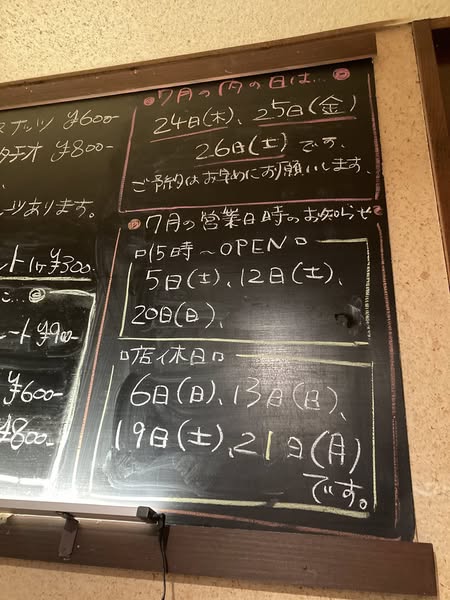 ナッツ ¥600-
タチオ ¥800-
ーツあります。
ント 1ヶ¥300.
ート ¥900-
¥600-
¥800-
7月の肉の日は…
24日(木)、25日(金)
26日(土)です。
ご予約はお早めにお願いします、
7月の営業日時のお知らせ
15時〜OPEN
5日(土)、12日(土)、
20日(日)、
店休日
6日(日)、13日(日)、
19日(土)、21日(月)
です。